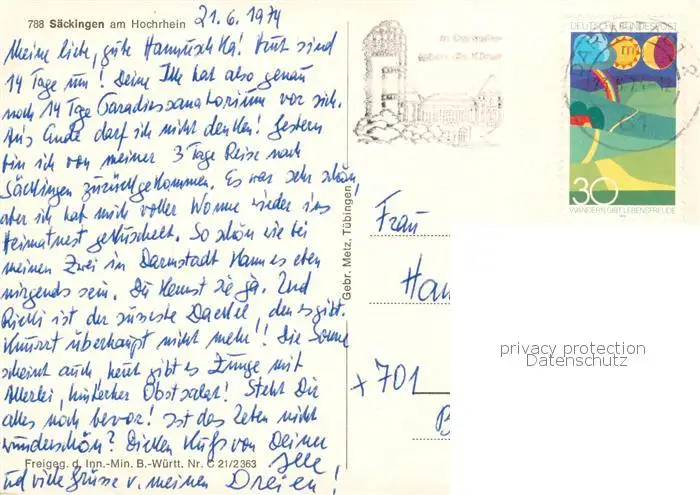 788 Säckingen am Hochrhein
21.6.1974
Meine liebe, gute Hannuschka! Heut sind
14 Tage um! Deine Ille hat also genau
noch 14 Tge Paradiessanatorium vor sich.
Ans Ende darf ich nicht denken! Gestern
bin ich von meiner 3 Tage Reise nach
Säckingen zurückgekommen. Es war sehr schön,
aber ich hab mich voller Wonne wieder ins
Heimatnest gekuschelt. So schön wie bei
meinen Zwei in Darmstadt kann es eben
nirgends sein. Du kennst sie ja. Und
Rickli ist der süsseste Dackel, den es gibt.
Knurrt überhaupt nicht mehr!! Die Sonne
scheint auch, heut gibt es Zunge mit
Allerlei, hinterher Obstsalat! Steht Dir
alles noch bevor! Ist das Leben nicht
wunderschön? Dicken Kuss von Deiner
Freigeg. d. Inn.-Min. B.-Württ. Nr. C 21/2363
Ille
und viele Grüsse v. meinen Dreien!
Gebr. Metz, Tübingen
in Darmstadt
leben die Künste
DEUTSCHE BUNDESPOST
30
WANDERN GIBT LEBENSFREUDE
Frau
Han
x 701
B
privacy protection
Datenschutz